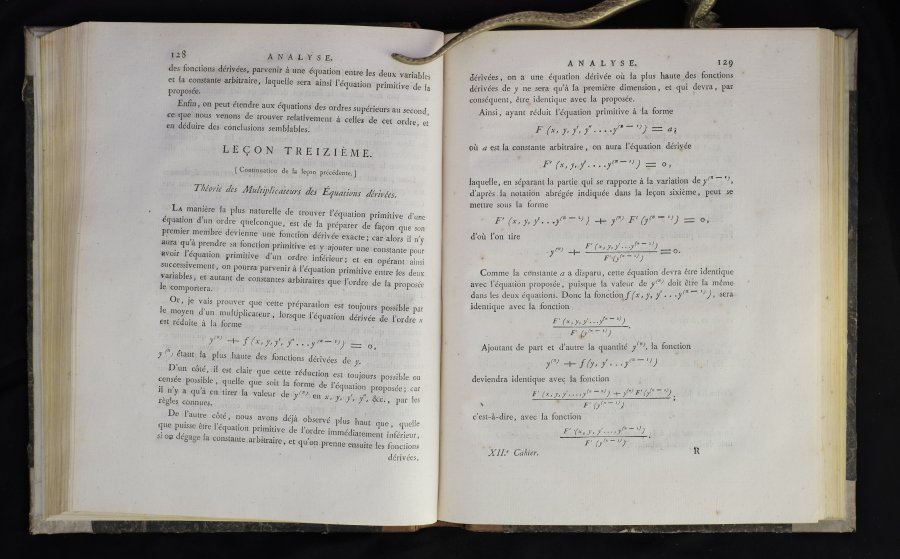 128 ANALYSE.
des fonctions dérivées, parvenir à une équation entre les deux variables
et la constante arbitraire, laquelle sera ainsi l'équation primitive de la
proposée.
Enfin, on peut étendre aux équations des ordres supérieurs au second,
ce que nous venons de trouver relativement à celles de cet ordre, et
en déduire des conclusions semblables.
LEÇON TREIZIÈME.
[ Continuation de la leçon précédente. ]
Théorie des Multiplicateurs des Équations dérivées.
LA manière la plus naturelle de trouver l'équation primitive d'une
équation d'un ordre quelconque, est de la préparer de façon que son
premier membre devienne une fonction dérivée exacte; car alors il n'y
aura qu'à prendre sa fonction primitive et y ajouter une constante pour
avoir l'équation primitive d'un ordre inférieur; et en opérant ainsi
successivement, on pourra parvenir à l'équation primitive entre les deux
variables, et autant de constantes arbitraires que l'ordre de la proposée
le comportera.
Or, je vais prouver que cette préparation est toujours possible par
le moyen d'un multiplicateur, lorsque l'équation dérivée de l'ordre n
est réduite à la forme
y⁽ⁿ⁾ + f (x, y, y', y''...y⁽ⁿ⁻¹⁾) = 0,
y⁽ⁿ⁾ étant la plus haute des fonctions dérivées de y.
D'un côté, il est clair que cette réduction est toujours possible ou
censée possible, quelle que soit la forme de l'équation proposée; car
il n'y a qu'à en tirer la valeur de y⁽ⁿ⁾ en x, y, y', y'', &c., par les
règles connues.
De l'autre côté, nous avons déjà observé plus haut que, quelle
que puisse être l'équation primitive de l'ordre immédiatement inférieur,
si on dégage la constante arbitraire, et qu'on prenne ensuite les fonctions
dérivées,
ANALYSE. 129
dérivées, on a une équation dérivée où la plus haute des fonctions
dérivées de y ne sera qu'à la première dimension, et qui devra, par
conséquent, être identique avec la proposée.
Ainsi, ayant réduit l'équation primitive à la forme
F (x, y, y', y''....y⁽ⁿ⁻¹⁾) = a;
où a est la constante arbitraire, on aura l'équation dérivée
F' (x, y, y'....y⁽ⁿ⁻¹⁾) = 0,
laquelle, en séparant la partie qui se rapporte à la variation de y⁽ⁿ⁻¹⁾,
d'après la notation abrégée indiquée dans la leçon sixième, peut se
mettre sous la forme
F' (x, y, y'...y⁽ⁿ⁻²⁾) + y⁽ⁿ⁾ F' (y⁽ⁿ⁻¹⁾) = 0,
d'où l'on tire
y⁽ⁿ⁾ + F' (x, y, y'...y⁽ⁿ⁻²⁾) / F' (y⁽ⁿ⁻¹⁾) = 0.
Comme la constante a a disparu, cette équation devra être identique
avec l'équation proposée, puisque la valeur de y⁽ⁿ⁾ doit être la même
dans les deux équations. Donc la fonction f (x, y, y'...y⁽ⁿ⁻¹⁾), sera
identique avec la fonction
F' (x, y, y'...y⁽ⁿ⁻²⁾) / F' (y⁽ⁿ⁻¹⁾).
Ajoutant de part et d'autre la quantité y⁽ⁿ⁾, la fonction
y⁽ⁿ⁾ + f (y, y'...y⁽ⁿ⁻¹⁾)
deviendra identique avec la fonction
F' (x, y, y'....y⁽ⁿ⁻²⁾) + y⁽ⁿ⁾ F' (y⁽ⁿ⁻¹⁾) / F' (y⁽ⁿ⁻¹⁾);
c'est-à-dire, avec la fonction
F' (x, y, y'....y⁽ⁿ⁻¹⁾) / F' (y⁽ⁿ⁻¹⁾).
XII.ᵉ Cahier. R